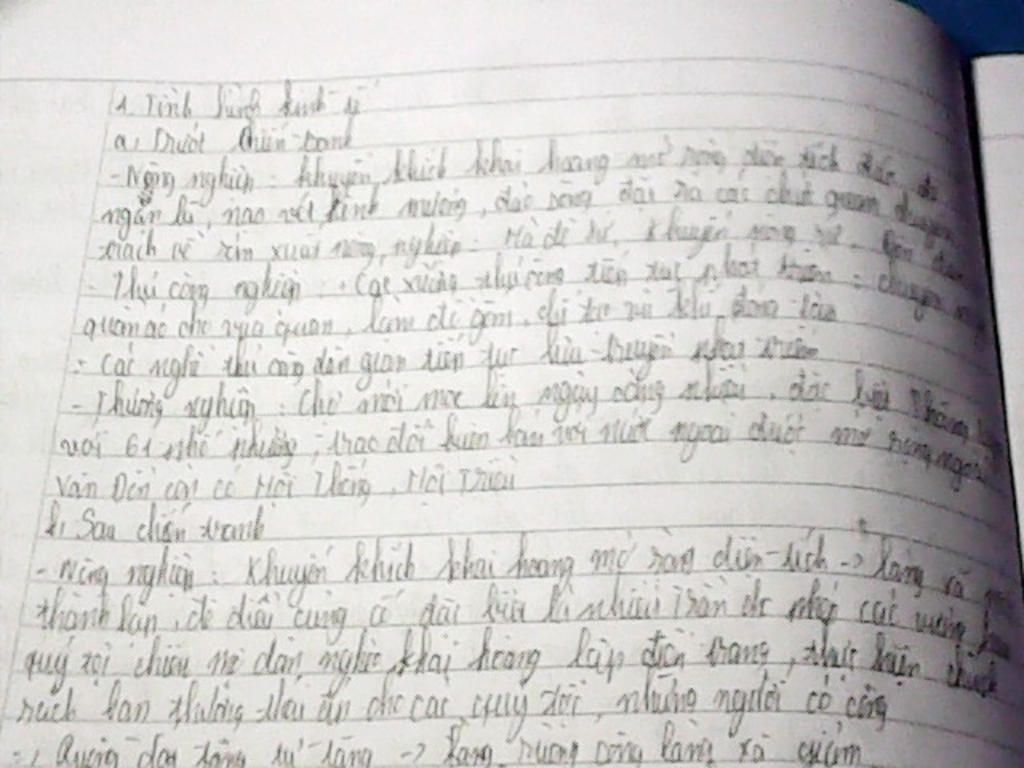 1. Tình hình kinh tế
a, Trước chiến tranh
- Nông nghiệp: Khuyến khích khai hoang mở rộng diện tích đắp đê
ngăn lũ, nạo vét kênh mương, đặt ra các chức quan chuyên
trách về nông nghiệp: Hà đê sứ, Khuyến nông sứ, Đồn điền
- Thủ công nghiệp: Các xưởng thủ công tiếp tục phát triển: chuyên
quần áo cho vua quan, làm đồ gốm, vũ khí, đóng tàu
- Các nghề thủ công dân gian tiếp tục lưu truyền phát triển
- Thương nghiệp: Chợ mới mọc lên ngày càng nhiều, đặc biệt Thăng
với 61 phố phường, trao đổi buôn bán với nước ngoài được mở rộng ngoài
Vân Đồn còn có Hội Thống, Hội Triều
b, Sau chiến tranh
- Nông nghiệp: Khuyến khích khai hoang mở rộng diện tích -> làng xã
thành lập, đê điều củng cố đặc biệt là nhà Trần cho phép các vương hầu
quý tộc chiêu mộ dân nghèo khai hoang lập điền trang, thực hiện chính
sách ban thưởng thái ấp cho các quý tộc, những người có công
=> Ruộng đất tăng -> ruộng công làng xã giảm